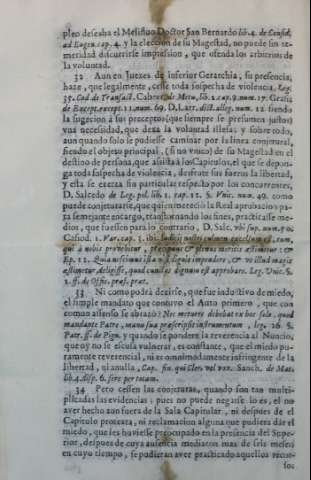 pleo deseaba el Melifluo Doctor San Bernardo lib. 4. de Consid.
ad Eugen. cap. 4. y la eleccion de su Magestad, no puede sin te-
meridad discurrirse impresion, que ofenda los arbitrios de
la voluntad.
32 Aun en Juezes de inferior Gerarchia, su presencia,
haze, que legalmente, cesse toda sospecha de violencia, Leg.
35. Cod. de Transact. Cabrer. de Metu, lib. 2. cap. 9. num. 17. Gratia.
de Except. except. 11. num. 69. D. Larr. dict. alleg. num. 12 siendo
la sugecion à sus preceptos (que siempre se presumen justos)
vna necessidad, que dexa la voluntad illesa; y sobre todo,
aun quando solo se pudiesse caminar por la linea conjetural,
siendo el objeto principal, (si no vnico) de su Magestad en el
destino de persona, que assista à los Capitulos, el que se depon-
ga toda sospecha de violencia, disfrute sus fueros la libertad,
y esta se exerza sin particular respecto por los concurrentes,
D. Salcedo de Leg. pol. lib. 1. cap. 12. §. Vnic. num. 49. como
puede conjeturarse, que quien mereciò la Real aprobacion pa-
ra semejante encargo, transtornando los fines, practicasse me-
dios, que fuessen para lo contrario, D. Salc. vbi sup. num. 50.
Casiod. 1. Var. cap. 1. ibi: Iudicij nostri culmen excelsum est, cum
qui à nobis prouehitur, præcipuus & plenus meritis æstimetur: &
Ep. 12. Quia nescimus ista nisi dignis impendere, & vt illud magis
æstimetur delegisse, quod cunctis dignum est approbare. Leg. Vnic. §.
1. ff. de Offic. præf. præt.
33 Ni como podrà dezirse, que fue inductivo de miedo,
el simple mandato que contuvo el Auto primero, que con
comun assenso se abrazò? Nec metuere debebat ex hoc solo, quod
mandante Patre, manu sua præscripsit instrumentum, leg. 26. §.
Patr. ff. de Pign. y quando se pondere la reverencia al Nuncio;
que oy no se escusa vulnerar, es constante, que el miedo pu-
ramente reverencial, ni es omnimodamente infringente de la
libertad, ni anulla, Cap. fin. qui Cler. vel vov. Sanch. de Mat.
lib. 4. disp. 6. fere per totam.
34 Pero cessen las conjeturas, quando son tan multi-
plicadas las evidencias; pues no puede negarse lo es, el no
aver hecho aun fuera de la Sala Capitular, ni despues de el
Capitulo protexta, ni reclamacion alguna que pudiera dàr el
miedo, que les huviesse preocupado en la presencia del Supe-
rior, despues de cuya ausencia mediaron mas de seis meses
en cuyo tiempo, se pudieran aver practicado aquellos recur-
sos